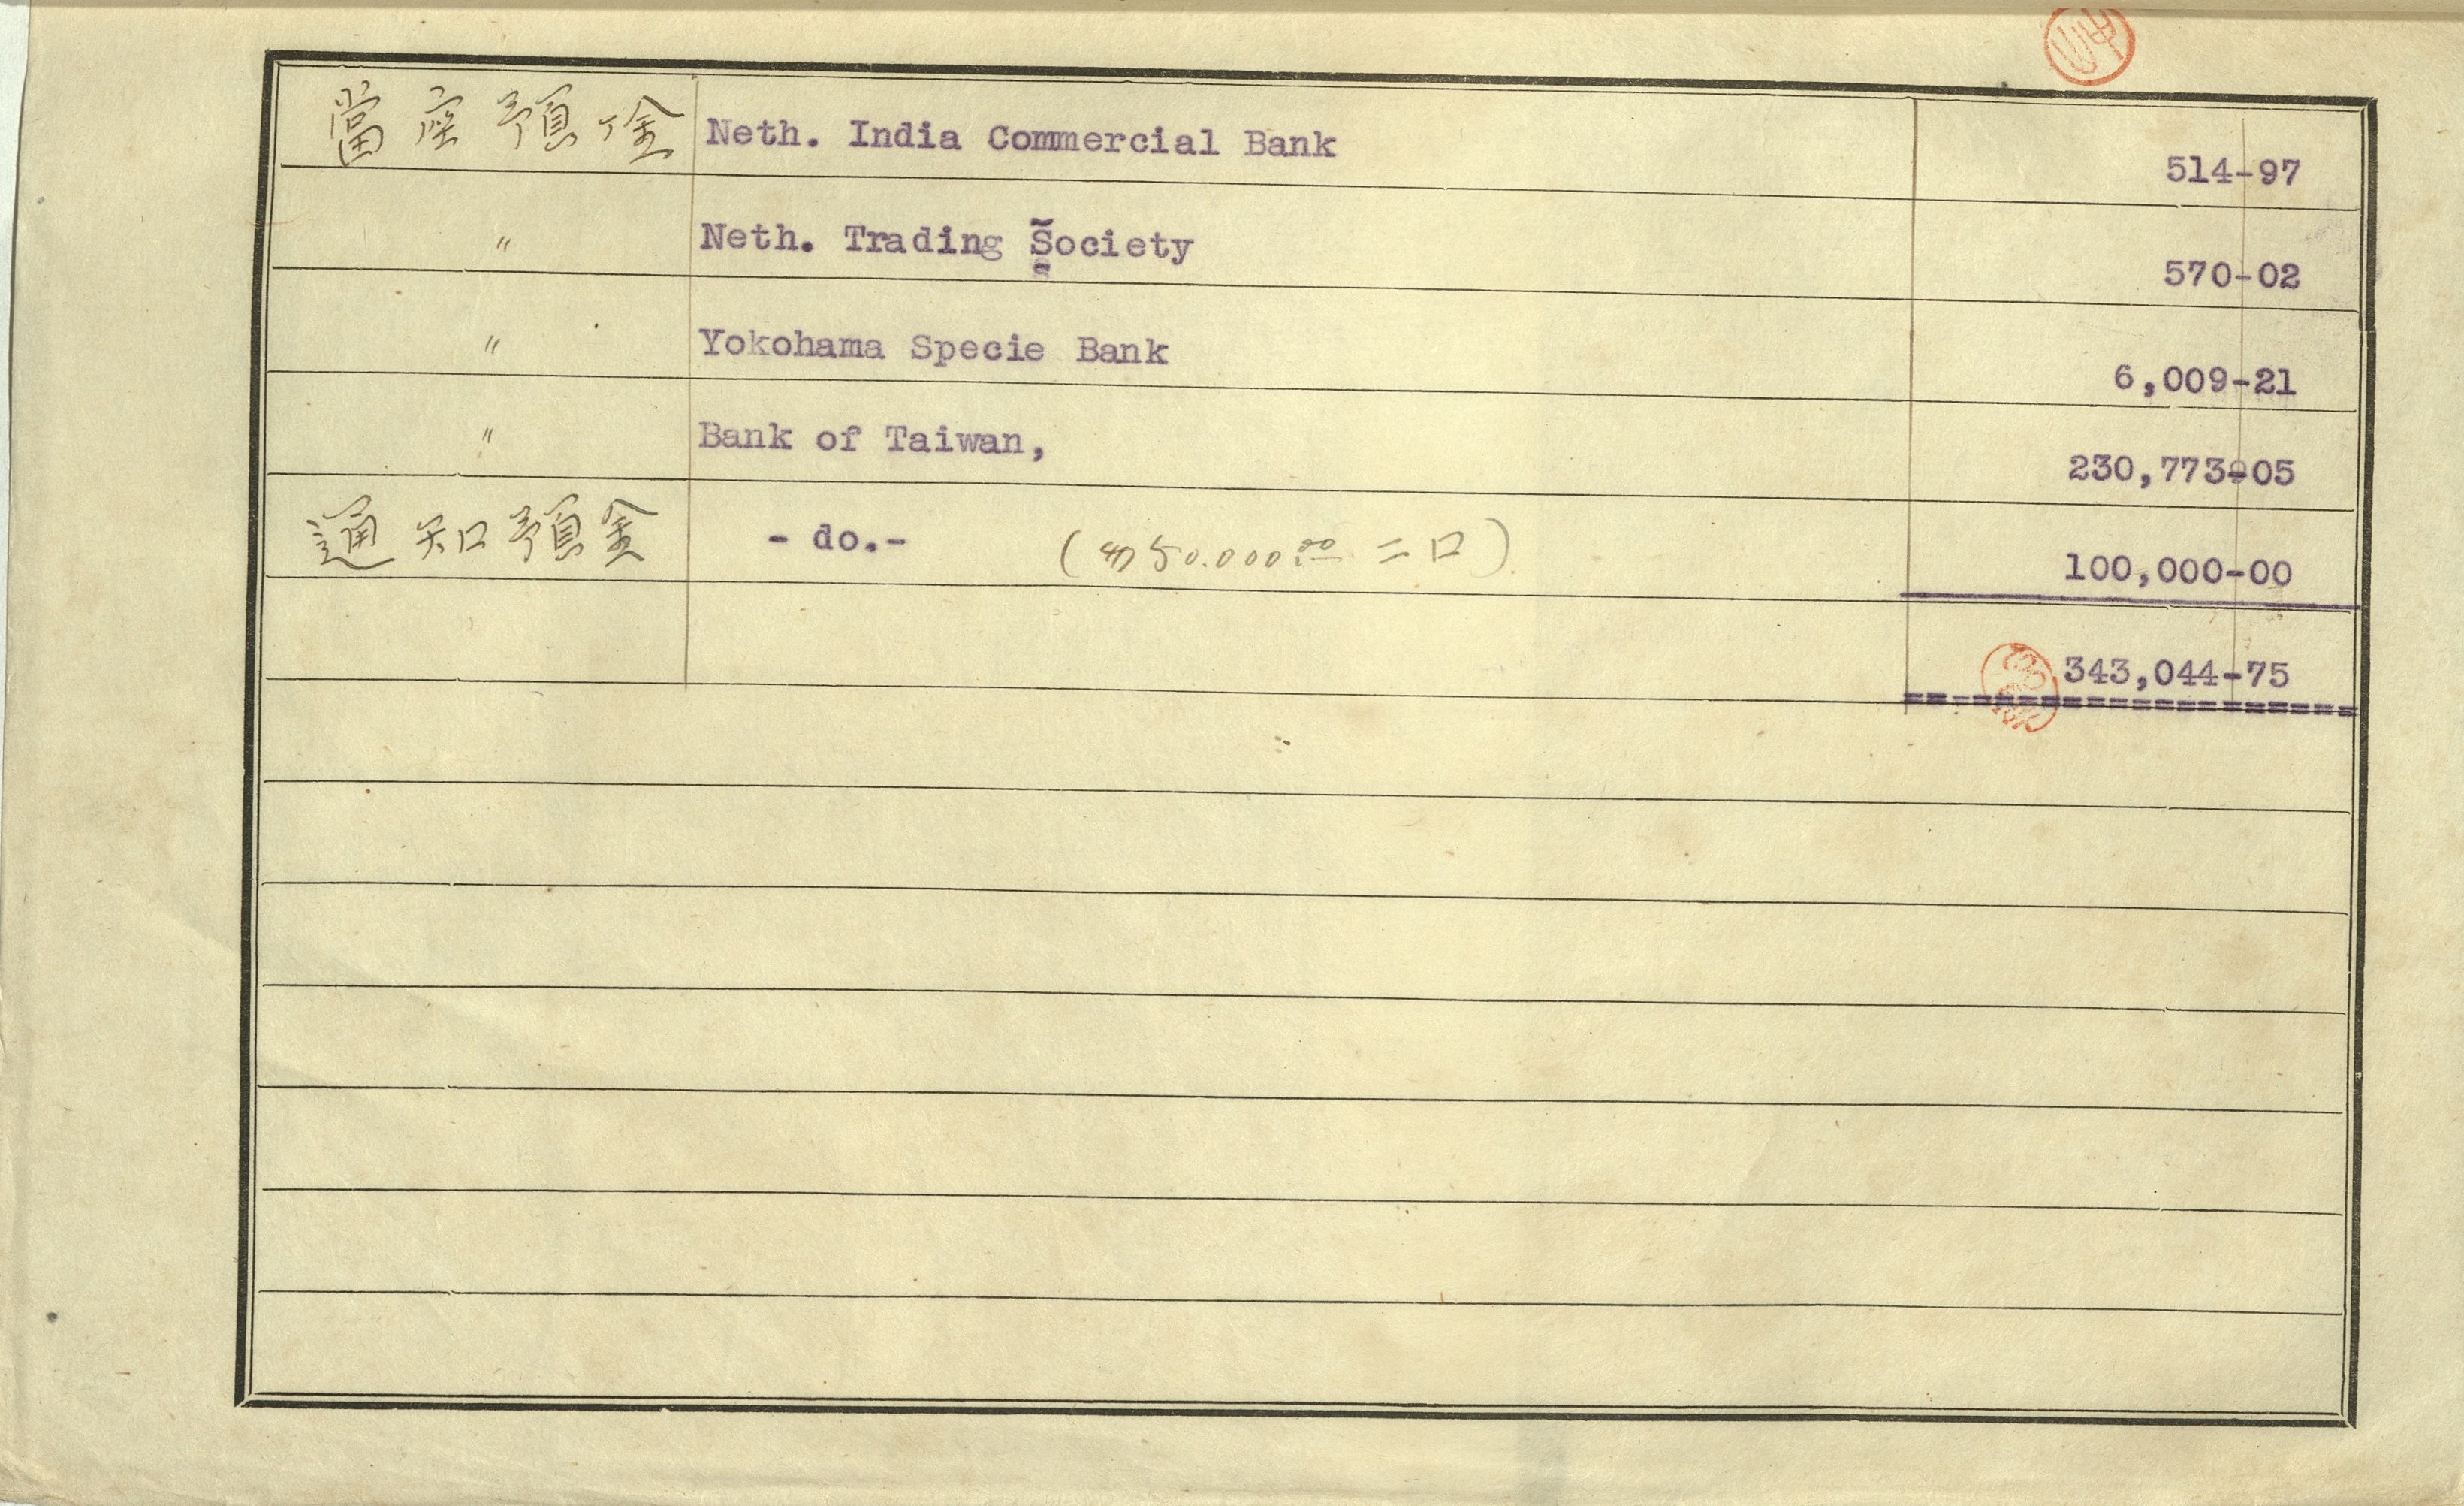 當座預金 Neth. India Commercial Bank 514-97
〃 Neth. Trading Society 570-02
〃 Yokohama Specie Bank 6,009-21
〃 Bank of Taiwan, 230,773-05
通知預金 - do.- ( 50.000.00 二口) 100,000-00
343,044-75